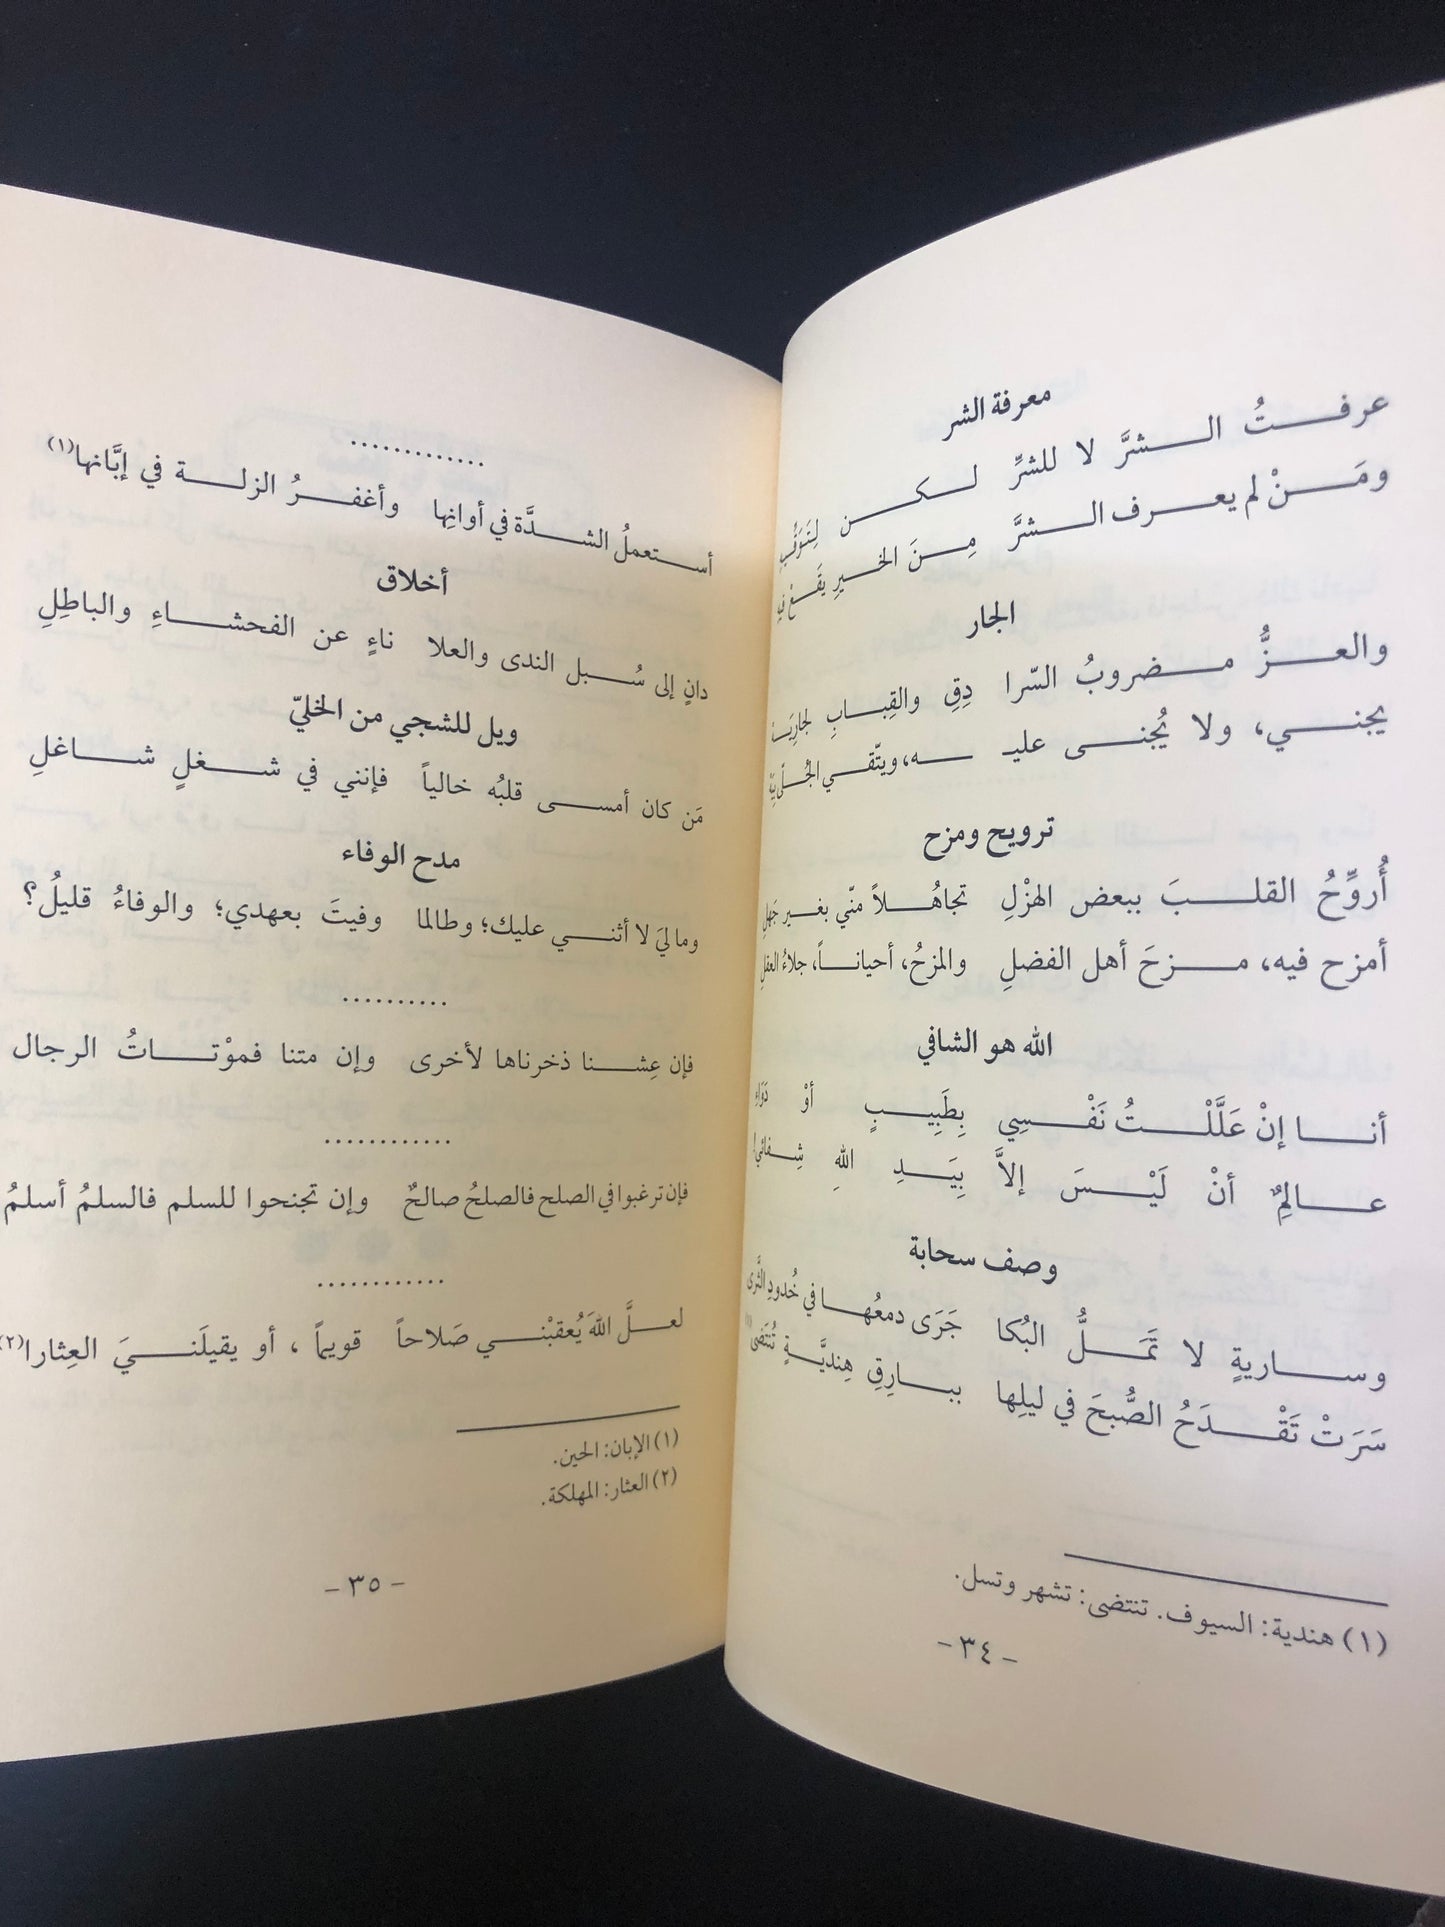 معرفة الشر
عرفتُ الشرَّ لا للشرِّ لكن لِتَوَقِّيهِ
ومَنْ لم يعرف الشرَّ مِنَ الخيرِ يقَعْ فيهِ
الجار
والعزُّ مضروبُ السّرا دِقِ والقِبابِ لجارِيَهْ
يجني، ولا يُجنى عليـ ـه، ويتّقي الجُلّى بِيَهْ
ترويح ومزح
أُروِّحُ القلبَ ببعض الهزْلِ تجاهُلاً منّي بغير جَهلِ
أمزح فيه، مزحَ أهل الفضلِ والمزحُ، أحياناً، جلاءُ العقلِ
الله هو الشافي
أنا إنْ عَلَّلْتُ نَفْسِي بِطَبِيبٍ أوْ دَوَاءِ
عالِمٌ أنْ لَيْسَ إلاَّ بِيَدِ اللهِ شِفائي!
وصف سحابة
وساريةٍ لا تَمَلُّ البُكا جَرَى دمعُها في خُدودِ الثَّرى
سَرَتْ تَقْدَحُ الصُّبحَ في ليلِها ببارِقِ هِنديَّةٍ تُنتَضى(١)
(١) هندية: السيوف. تنتضى: تشهر وتسل.
- ٣٤ -
............
أستعملُ الشدَّة في أوانِها وأغفرُ الزلة في إبَّانها(١)
أخلاق
دانٍ إلى سُبل الندى والعلا ناءٍ عن الفحشاءِ والباطِلِ
ويل للشجي من الخليّ
مَن كان أمسى قلبُه خالياً فإنني في شغلٍ شاغلِ
مدح الوفاء
وما ليَ لا أثني عليك؛ وطالما وفيتَ بعهدي؛ والوفاءُ قليلُ؟
..........
فإن عِشنا ذخرناها لأخرى وإن متنا فموْتاتُ الرجال
............
فإن ترغبوا في الصلح فالصلحُ صالحٌ وإن تجنحوا للسلم فالسلمُ أسلمُ
............
لعلَّ اللهَ يُعقبْني صَلاحاً قويماً ، أو يقيلَنيَ العِثارا(٢)
(١) الإبان: الحين.
(٢) العثار: المهلكة.
- ٣٥ -